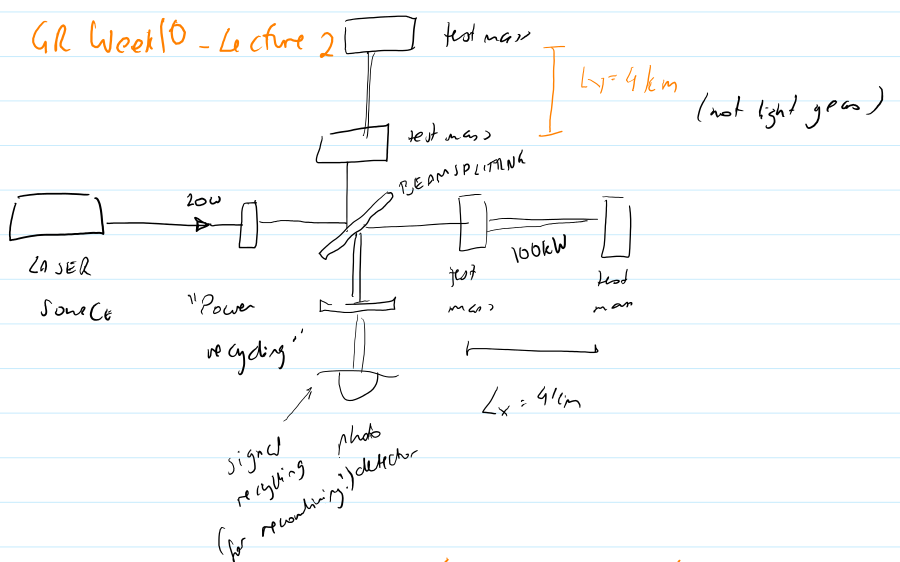 GR Week 10 - Lecture 2
test mass
Ly = 4 km
(not light years)
test mass
BEAMSPLITTING
20W
LASER
SOURCE
"Power
recycling"
100kW
test
mass
test
mass
Lx = 4 km
signal
recycling
photo
detector